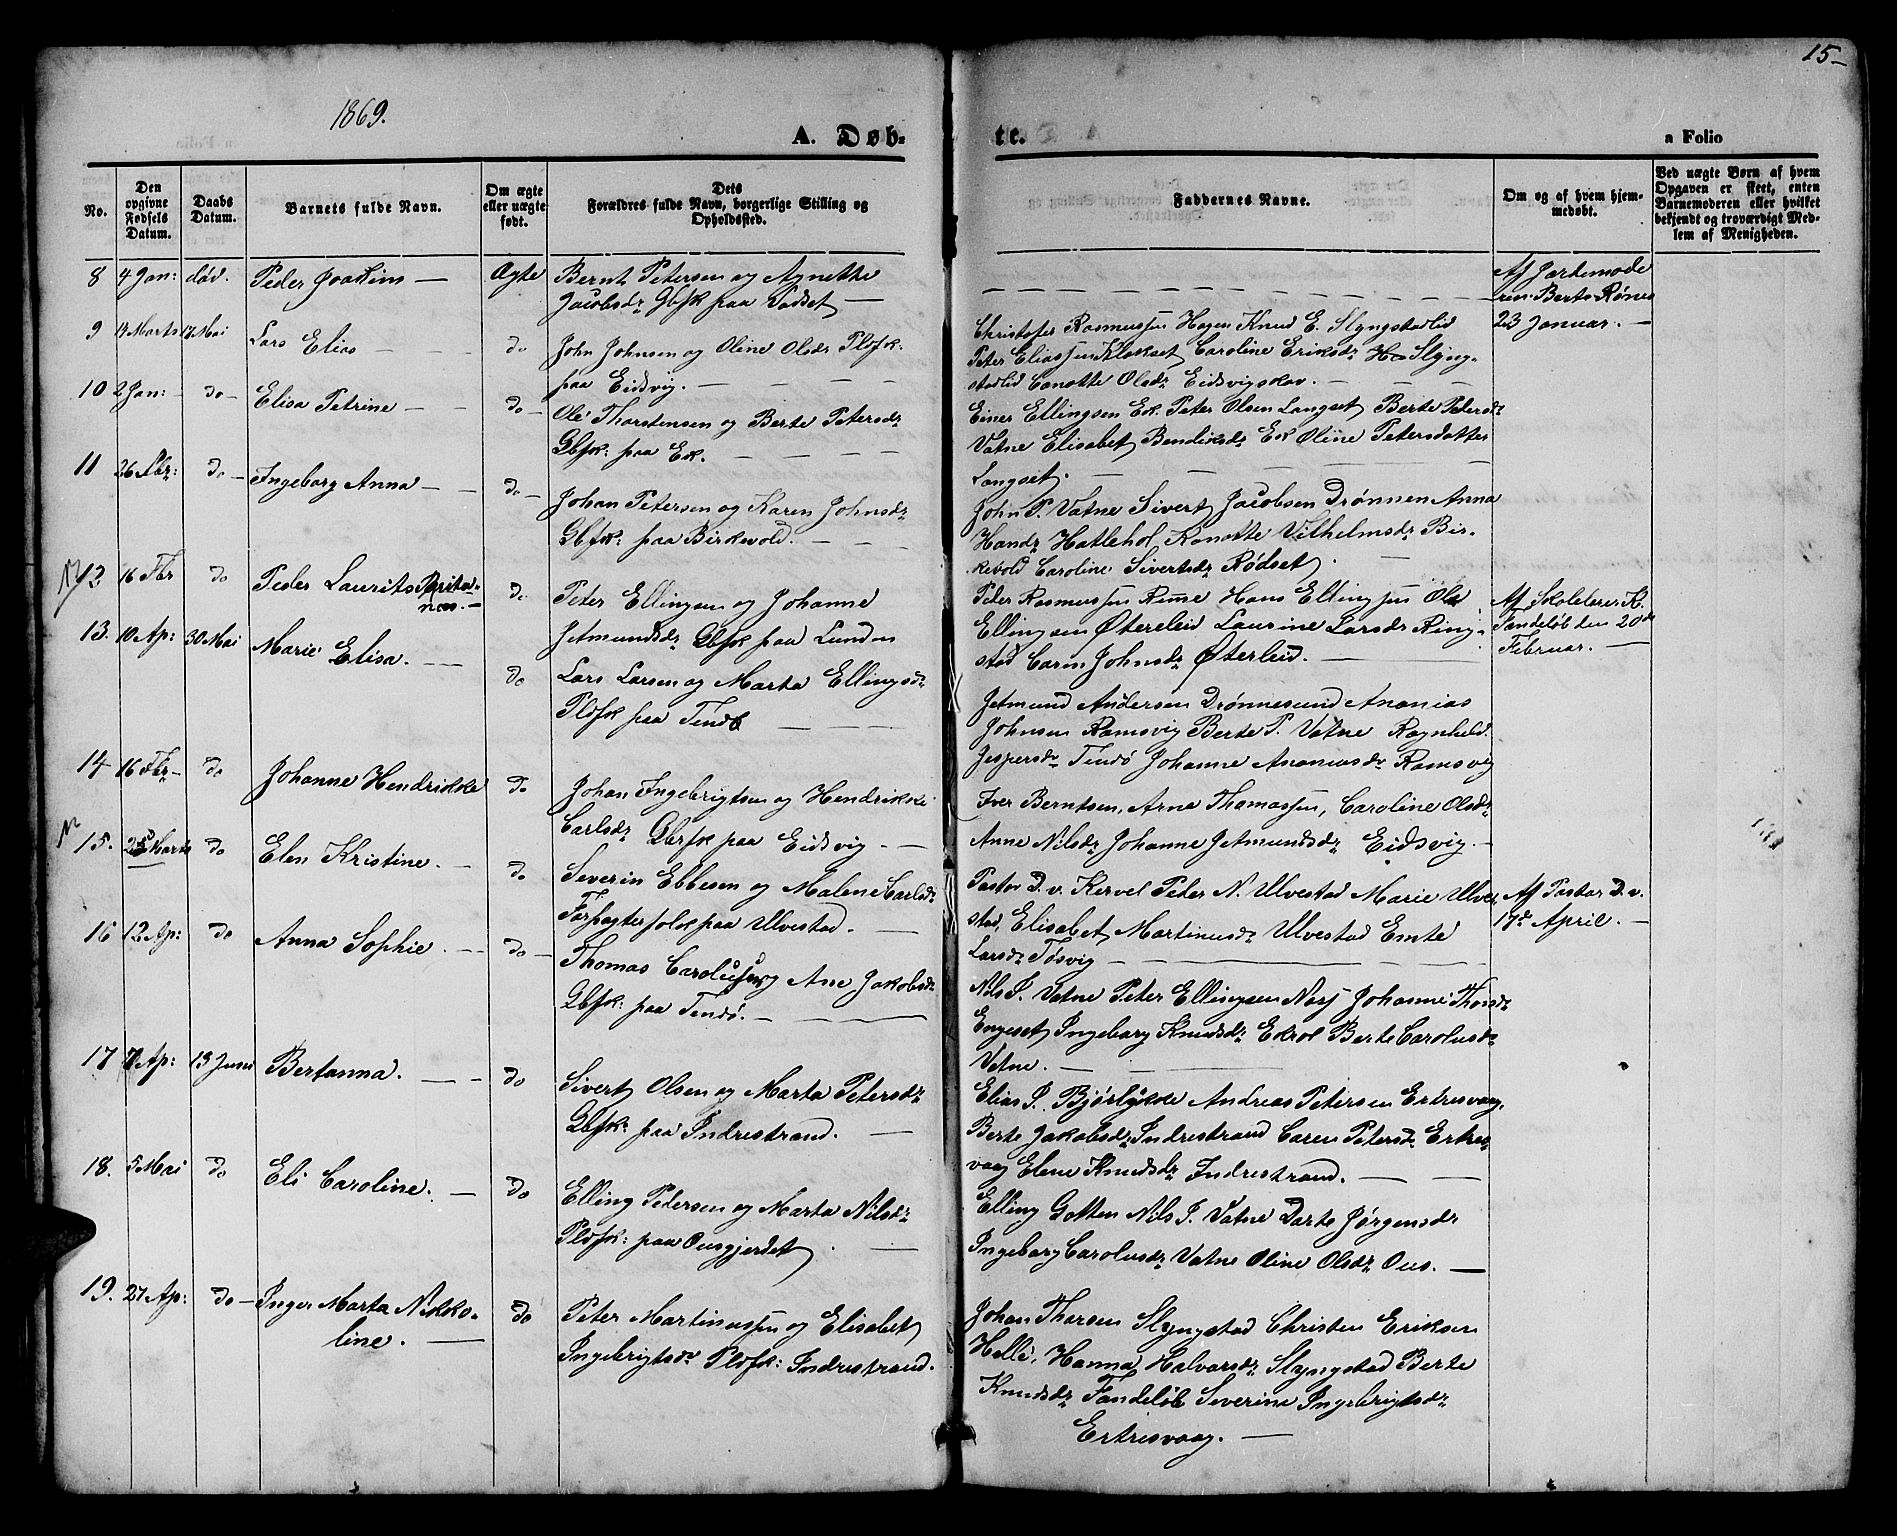 15
1869.
A. Døb-
te.
a Folio
No.
Den opgivne Fødsels Datum.
Daabs Datum.
Barnets fulde Navn.
Om ægte eller uægte født.
Dets Forældres fulde Navn, borgerlige Stilling og Opholdssted.
Faddernes Navne.
Om og af hvem hjemmedøbt.
Ved uægte Børn af hvem Opgaven er skeet, enten Barnemoderen eller hvilket bekjendt og troværdigt Medlem af Menigheden.
8 4 Jan: død. Peder Joakim — Ægte Bernt Petersen og Agnette
Jacobsdr Gbfk paa Vadset —
Af Jordemode
ren Berte Rønes
23 Januar. —
9 14 Marts 17 Mai Lars Elias — do John Johnsen og Oline Olsdr Pldfk:
paa Eidsvig. —
Christofer Rasmussen Hagen Knud E. Slyngstadlid
Peter Eliassen Klokset Caroline Eriksdr Slyng-
stadlid Canotte Olsdr Eidsvigskor. —
10 2 Jan: — do — Elisa Petrine — do — Ole Thorstensen og Berte Petersdr
Gbfk: paa Ek. —
Einer Ellingsen Ek. Peter Olsen Langset Berte Pedersdr
Vatne Elisabet Bendiksdr Ek Oline Petersdatter
Langset. —
11 26 Fbr: do — Ingeborg Anna — do — Johan Petersen og Karen Johnsdr
Gbfk: paa Birkevold. —
John P. Vatne Sivert Jacobsen Drønnen Anna
Hansdr Hatlehol Kanotte Vilhelmsdr Bir-
kevold Caroline Sivertsdr Rødset. —
12 16 Fbr do Peder Laurits Krista-
nus. — do Peter Ellingsen og Johanne
Jetmundsdr Gbfk paa Lunden
Peder Rasmussen Rime Hans Ellingsen Ole
Ellingsen Østereleid Laurine Larsdr Ring-
stad Caren Johnsdr Østerleid. —
Af Skolelærer K.
Tandeløb den 20de
Februar. —
13. 10 Ap: 30 Mai Marie Elisa. — do Lars Larsen og Marta Ellingsdr
Pldfk paa Tendø —
Jetmund Andersen Drønnesund Ananias
Johnsen Ramsvig Berte P. Vatne Ragnheld.
Jespersdr Tendø Johanne Ananiasdr Ramsvig
14 16 Fbr — do Johanne Hendrikke do Johan Ingebrigtsen og Hendrikke
Carlsdr Gbfk paa Eidsvig —
Iver Berntsen, Arne Thomassen, Caroline Olsdr
Anne Nilsdr Johanne Jetmundsdr Eidsvig. —
15. 25 Marts do Elen Kristine. — do Severin Ebbesen og Malene Carlsdr
Forpagterfolk paa Ulvestad. —
Pastor D. v. Kervel Peter N. Ulvestad Marie Ulve-
stad, Elisabet Martinusdr Ulvestad Emte
Larsdr Tøsvig —
Af Pastor D. v.
17de April. —
16 12 Ap: do Anna Sophie. — do — Thomas Carolussen og Ane Jakobsdr
Gbfk: paa Tendø. —
Nils P. Vatne Peter Ellingsen Nørj Johanne Thorsdr
Engeset Ingeborg Knudsdr Ekrol Berte Carolusdr
Vatne. —
17 7 Ap: 13 Juni Bertanna. — do Sivert Olsen og Marta Petersdr
Gbfk: paa Indrestrand. —
Elias P. Bjørlykke Andreas Petersen Ertresvaag,
Berte Jakobsdr Indrestrand Caren Petersdr Ertres-
vaag Elene Knudsdr Indrestrand. —
18. 5 Mai do Eli Caroline. — do Elling Petersen og Marta Nilsdr
Pldfk: paa Ousgjerdet. —
Elling Gotten Nils P. Vatne Dorte Jørgensdr
Ingeborg Carolusdr Vatne Oline Olsdr Ous. —
19. 27 Ap: do — Inger Marta Nikko-
line. — do Peter Martinussen og Elisabet
Ingebrigtsdr Pldfk: Indrestrand.
Johan Thorsen Slyngstad Christen Eriksen
Helle, Hanna Halvorsdr Slyngstad Berte
Knudsdr Tandeløb Severine Ingebrigtsdr
Ertresvaag. —